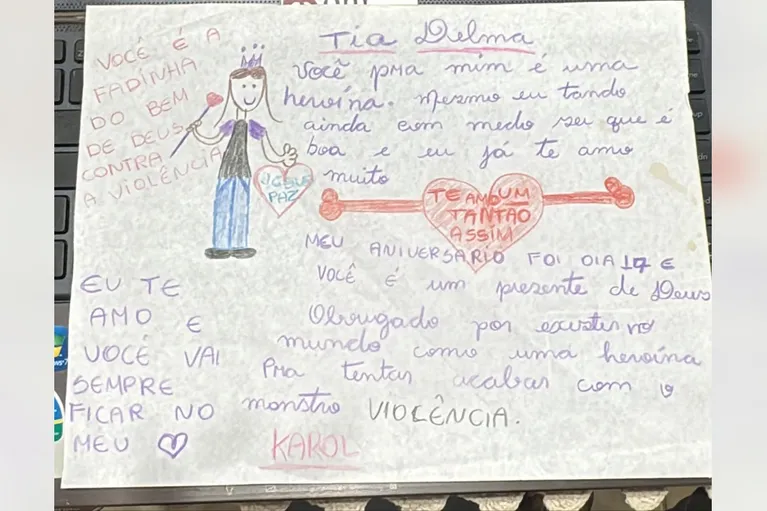 VOCÊ É A
FADINHA
DO BEM
DE DEUS
CONTRA
A VIOLÊNCIA
Tia Delma
Você pra mim é uma
heroína. Mesmo eu tando
ainda com medo sei que é
boa e eu já te amo
muito
PAZ
TE AMO UM
TANTÃO
ASSIM
MEU ANIVERSARIO FOI DIA 17 E
VOCÊ É um presente de Deus
Obrigado por existir no
mundo como uma heroína
Pra tentar acabar com o
monstro VIOLÊNCIA.
KAROL
EU TE
AMO E
VOCÊ VAI
SEMPRE
FICAR NO
MEU